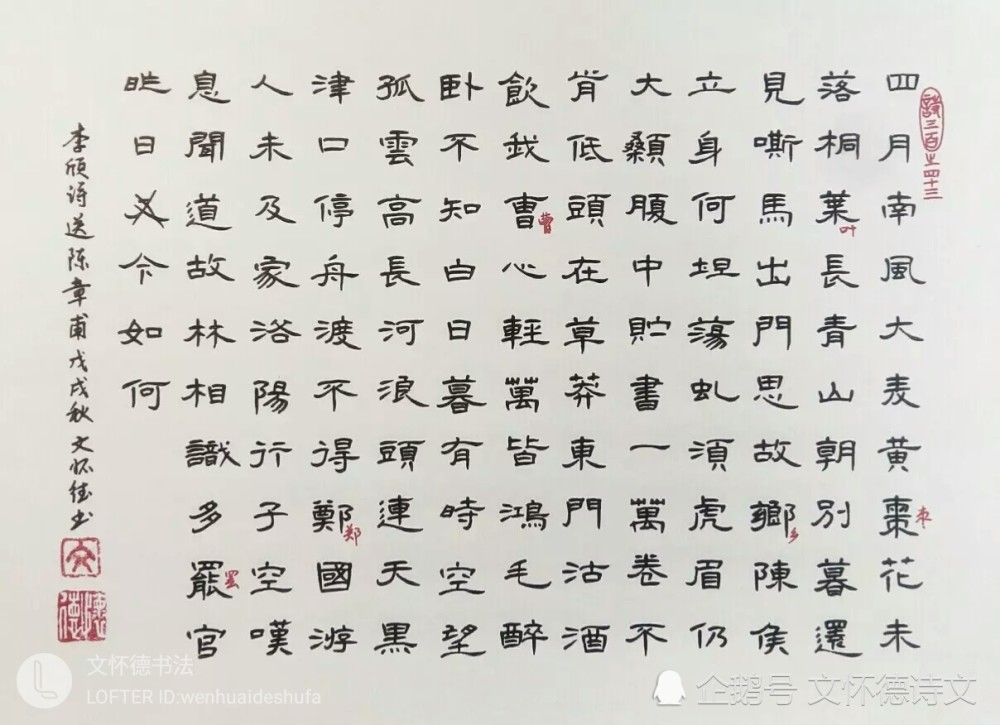 詩三百之四十三
四月南風大麦黄棗花未
枣
落桐葉長青山朝別暮還
叶
見嘶馬出門思故鄉陳侯
乡
立身何坦蕩虬須虎眉仍
大顙腹中貯書一萬卷不
肯低頭在草莽東門沽酒
飲我曹心輕萬皆鴻毛醉
曹
卧不知白日暮有時空望
孤雲高長河浪頭連天黑
津口停舟渡不得鄭國游
郑
人未及家洛陽行子空嘆
息聞道故林相識多罷官
罢
昨日今如何
李颀诗送陈章甫戊戌秋文怀德书
文
懷德
文怀德书法
LOFTER ID:wenhuaideshufa
企鹅号 文怀德诗文